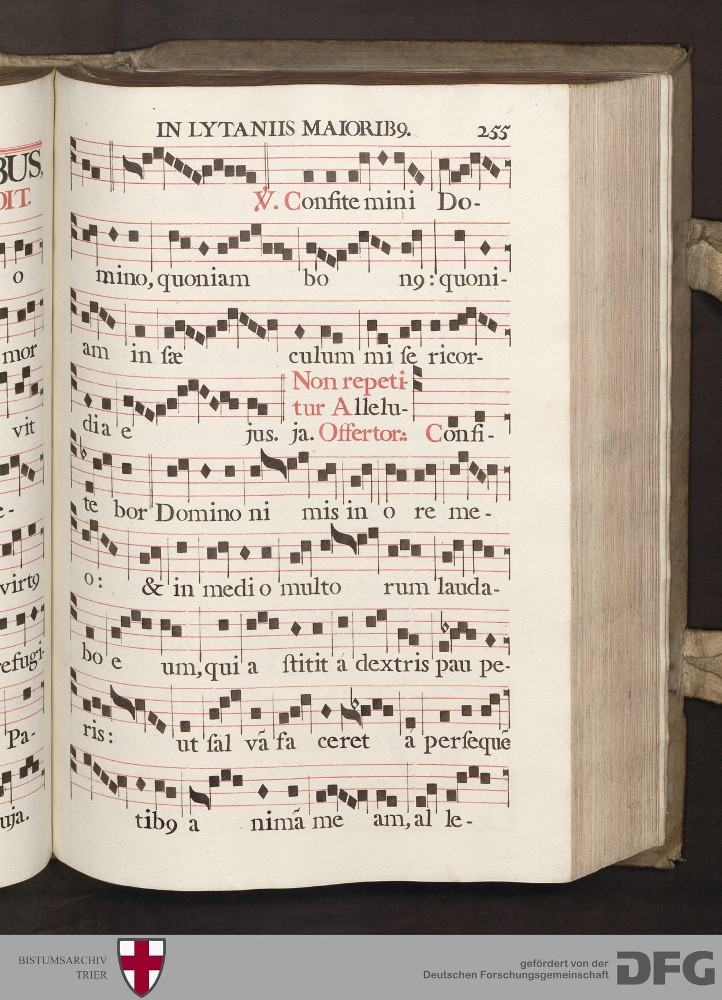 BUS,
DIT.
o
mor
vit
e-
virt9
refugi-
Pa-
uja.
IN LYTANIIS MAIORIB9. 255
℣. Confite mini Do-
mino, quoniam bo n9: quoni-
am in sæ culum mi se ricor-
Non repeti-
tur Allelu-
dia e jus. ja. Offertor: Confi-
te bor Domino ni mis in o re me-
o: & in medio multo rum lauda-
bo e um, qui a stitit á dextris pau pe-
ris: ut sal vã fa ceret á persequẽ
tib9 a nimã me am, al le-
BISTUMSARCHIV
TRIER
gefördert von der
Deutschen Forschungsgemeinschaft
DFG